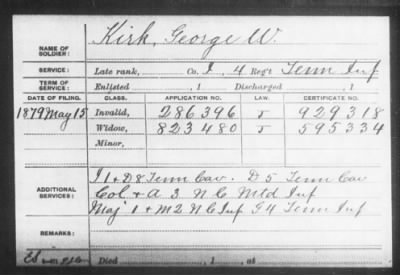 NAME OF SOLDIER: Kirk, George W.
SERVICE: Late rank, Co. I, 4 Reg't Tenn Inf
TERM OF SERVICE: Enlisted , 1 Discharged , 1
DATE OF FILING. CLASS. APPLICATION NO. LAW. CERTIFICATE NO.
1879 May 15 Invalid, 286396 J 929318
Widow, 823480 J 595334
Minor,
ADDITIONAL SERVICES: I 1 + D 8 Tenn Cav. D 5 Tenn Cav
Col + A 3 N C Mtd Inf
Maj 1 + M 2 N C Inf G 4 Tenn Inf
REMARKS:
Died , 1 , at